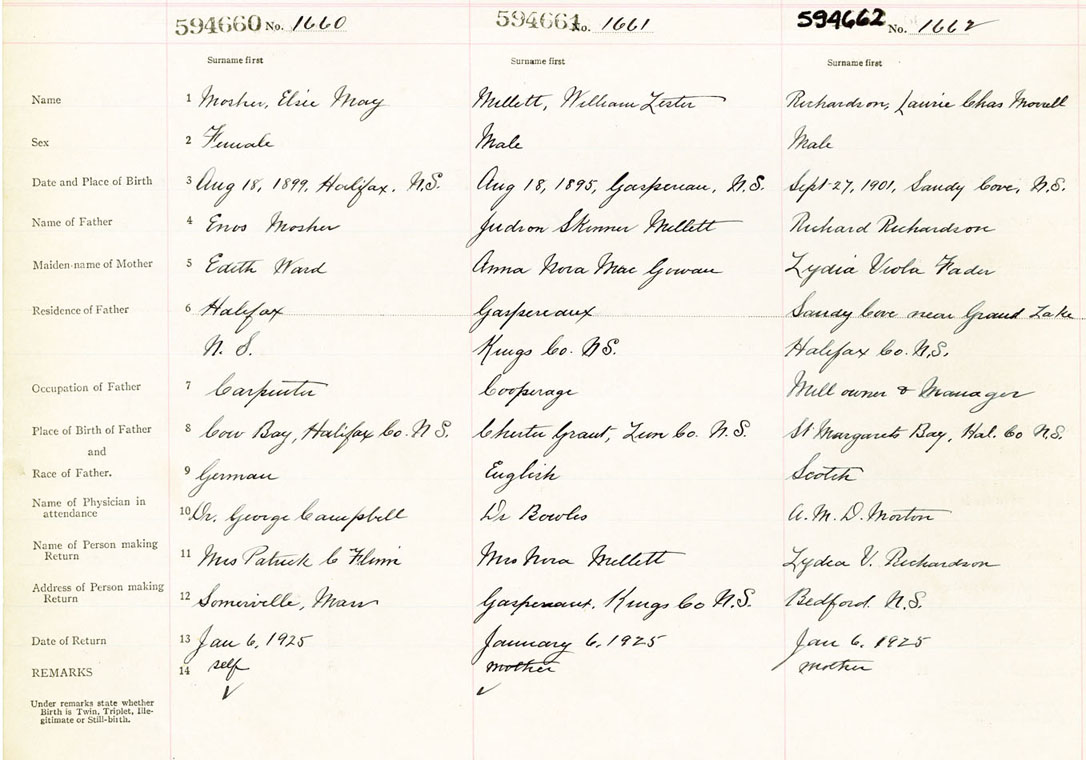 594660 No. 1660 594661 No. 1661 594662 No. 1662
Surname first Surname first Surname first
Name 1 Mosher, Elsie May Mellett, William Lester Richardson, Laurie Chas Morrell
Sex 2 Female Male Male
Date and Place of Birth 3 Aug 18, 1899, Halifax, N.S. Aug 18, 1895, Gaspereau, N.S. Sept 27, 1901, Sandy Cove, N.S.
Name of Father 4 Enos Mosher Judson Skinner Mellett Richard Richardson
Maiden-name of Mother 5 Edith Ward Anna Nora Mac Gowan Lydia Viola Fader
Residence of Father 6 Halifax Gaspereaux Sandy Cove near Grand Lake
N. S. Kings Co. N.S. Halifax Co. N.S.
Occupation of Father 7 Carpenter Cooperage Mill owner & Manager
Place of Birth of Father 8 Cow Bay, Halifax Co. N S. Chester Grant, Lun Co. N.S. St Margarets Bay, Hal. Co N.S.
and
Race of Father. 9 German English Scotch
Name of Physician in
attendance 10 Dr. George Campbell Dr Bowles A. M. D. Morton
Name of Person making
Return 11 Mrs Patrick C Flinn Mrs Nora Mellett Lydia V. Richardson
Address of Person making
Return 12 Somerville, Mass Gaspereaux, Kings Co N.S. Bedford N.S.
Date of Return 13 Jan 6, 1925 January 6, 1925 Jan 6, 1925
REMARKS 14 self mother mother
Under remarks state whether
Birth is Twin, Triplet, Ille-
gitimate or Still-birth.